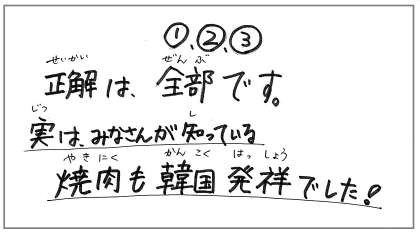 ①、②、③
せいかい ぜんぶ
正解は、全部です。
じつ し
実は、みなさんが知っている
やきにく かんこく はっしょう
焼肉も韓国発祥でした！